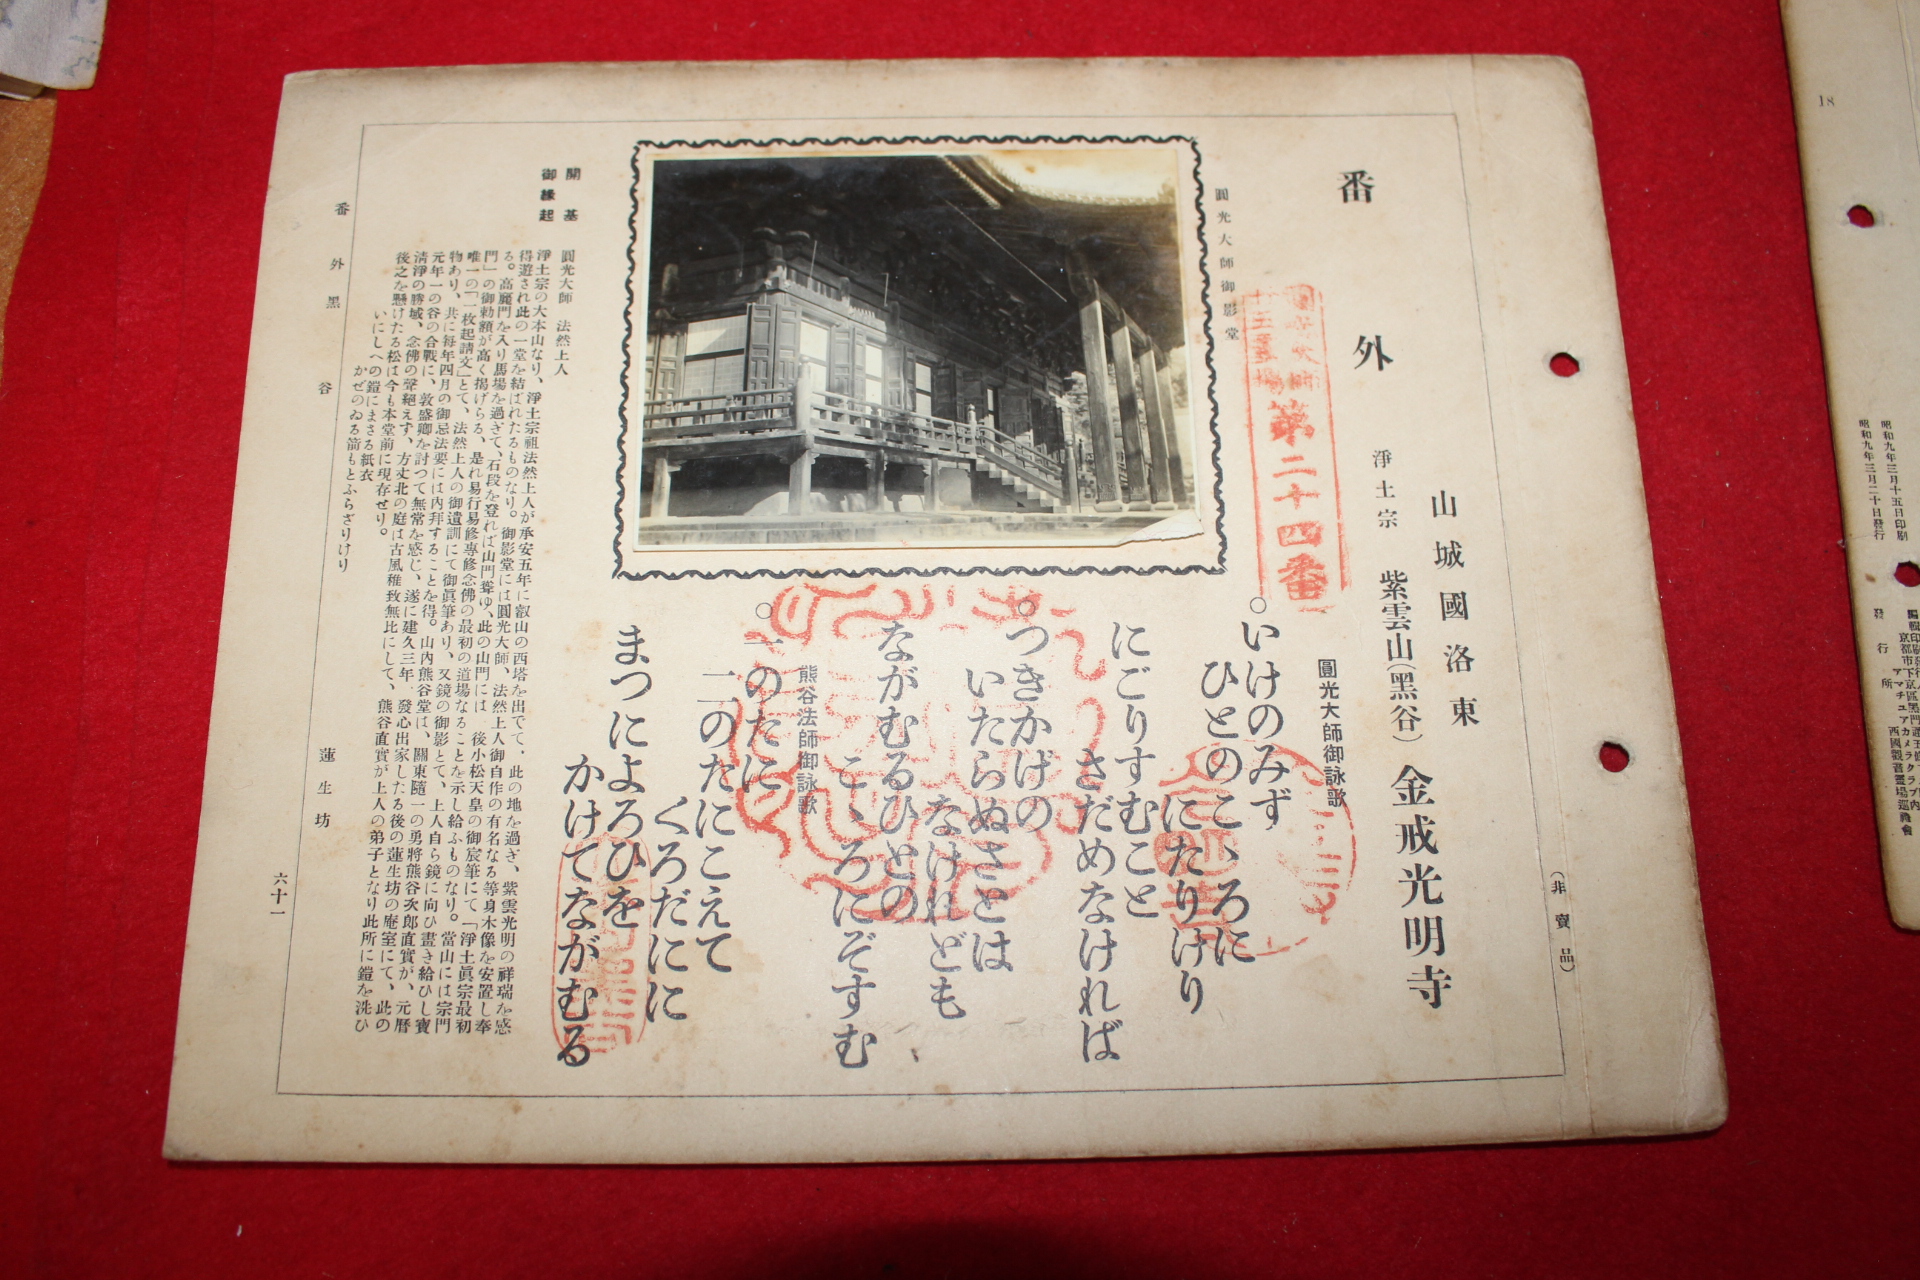 番外
山城國洛東
淨土宗 紫雲山(黑谷) 金戒光明寺
(非賣品)
圓光大師御影堂
第二十四番
圓光大師御詠歌
○いけのみづ
ひとのこゝろに
にたりけり
にごりすむこと
さだめなければ
○つきかげの
いたらぬさとは
なけれども
ながむるひとの
こゝろにぞすむ
熊谷法師御詠歌
○一のたに
二のたにこえて
くろだにに
まつによろひを
かけてながむる
開基 圓光大師 法然上人
御緣起 淨土宗の大本山なり、淨土宗祖法然上人が承安五年に叡山の西塔を出でて、此の地を過ぎ、紫雲光明の祥瑞を感
得遊され此の一堂を結ばれたるものなり。御影堂には圓光大師、法然上人御自作の有名なる等身木像を安置し奉
る。高麗門を入り馬場を過ぎて、石段を登れば山門聳ゆ、此の山門には 後小松天皇の御宸筆にて、「淨土眞宗最初
門」の御勅額が高く揭げらる、是れ易行易修專修念佛の最初の道場なることを示し給ふものなり。當山には宗門
唯一の「一枚起請文」とて、法然上人の御遺訓にて御眞筆あり、又鏡の御影とて、上人自ら鏡に向ひ畫き給ひし寶
物あり、共に每年四月の御忌法要には內拜することを得。山內熊谷堂は、關東隨一の勇將熊谷次郎直實が、元曆
元年一の谷の合戰に、敦盛卿を討つて無常を感じ、遂に建久三年、發心出家したる後の蓮生坊の庵室にて、此の
淸淨の勝城、念佛の聲絕えず、方丈北の庭は古風雅致無比にして、熊谷直實が上人の弟子となり此所に鎧を洗ひ
後之を懸けたる松は今も本堂前に現存せり。
いにしへの鎧にまさる紙衣
かぜのゐる箭もとふらざりけり
蓮生坊
番外黑谷
六十一
18
昭和九年三月十五日印刷
昭和九年三月二十日發行
發行所